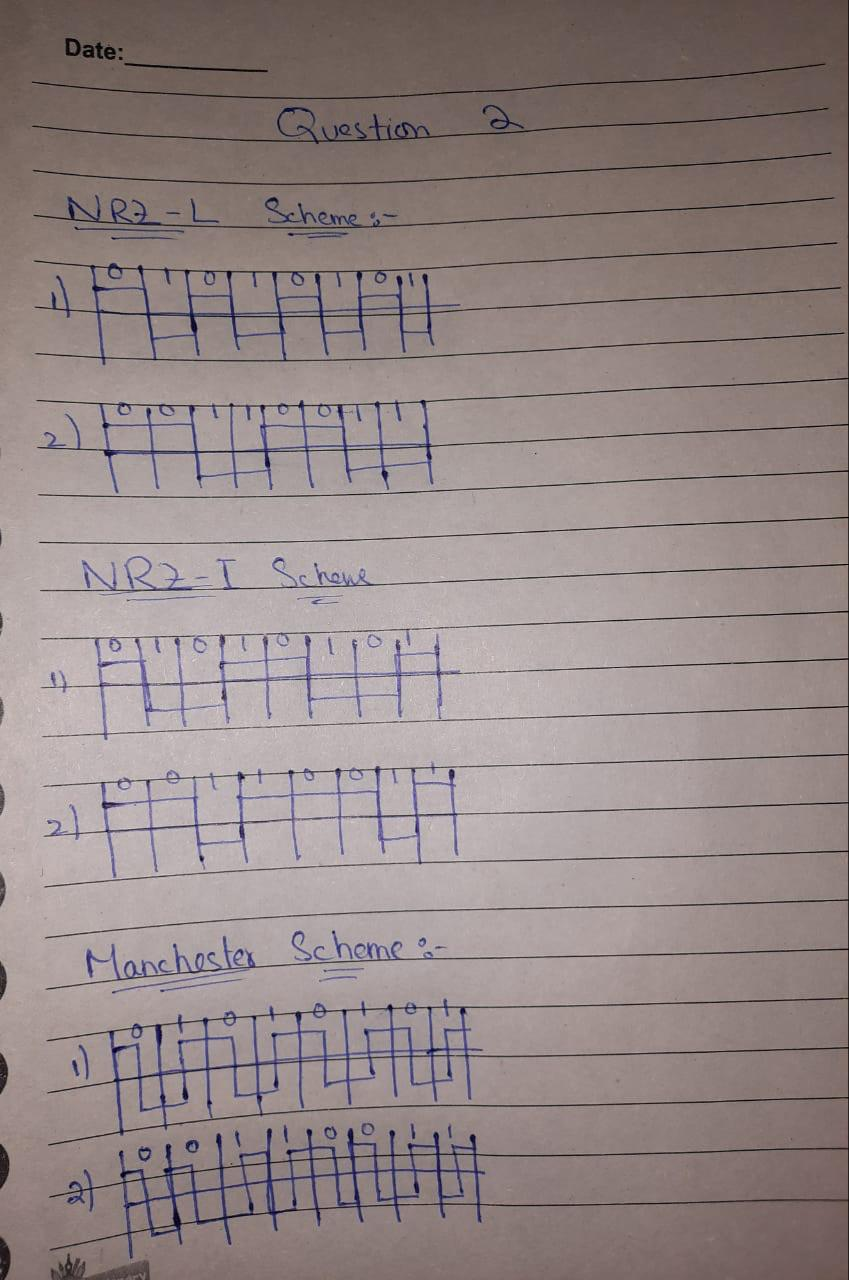 Date:
Question 2
NRZ-L Scheme:-
1) 0 1 0 1 0 1 0 1
2) 0 0 1 1 0 0 1 1
NRZ-I Scheme
1) 0 1 0 1 0 1 0 1
2) 0 0 1 1 0 0 1 1
Manchester Scheme:-
1) 0 1 0 1 0 1 0 1
2) 0 0 1 1 0 0 1 1